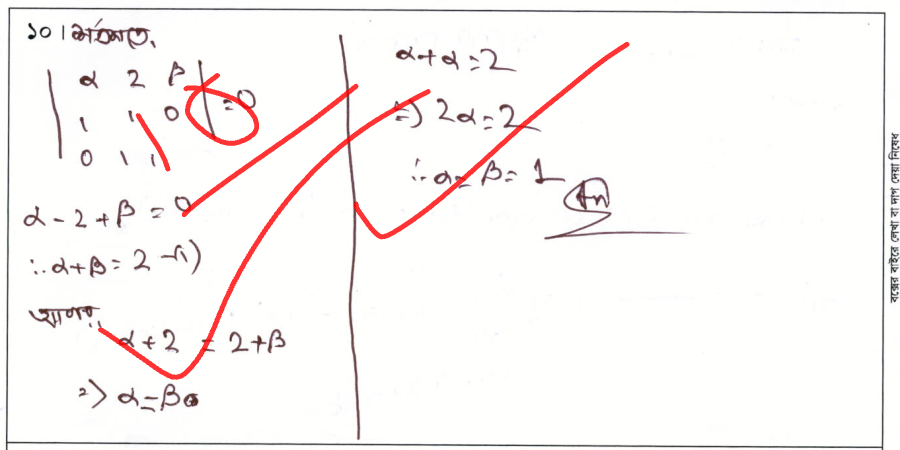 ১০। শর্তমতে,
| α 2 β |
| 1 1 0 | = 0
| 0 1 1 |
α - 2 + β = 0
∴ α + β = 2 -(i)
আবার,
α + 2 = 2 + β
⇒ α = β
α + α = 2
⇒ 2α = 2
∴ α = β = 1
(Ans)
বক্সের বাইরে লেখা বা দাগ দেয়া নিষেধ